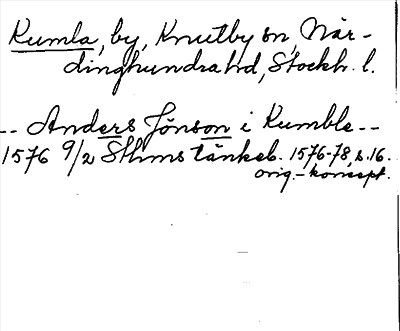 Kumla, by, Knutby sn, När-
dinghundra hd, Stockh. l.
-- Anders Jönson i Kumble --
1576 9/2 Sthms tänkeb. 1576-78, s. 16.
orig.-koncept.